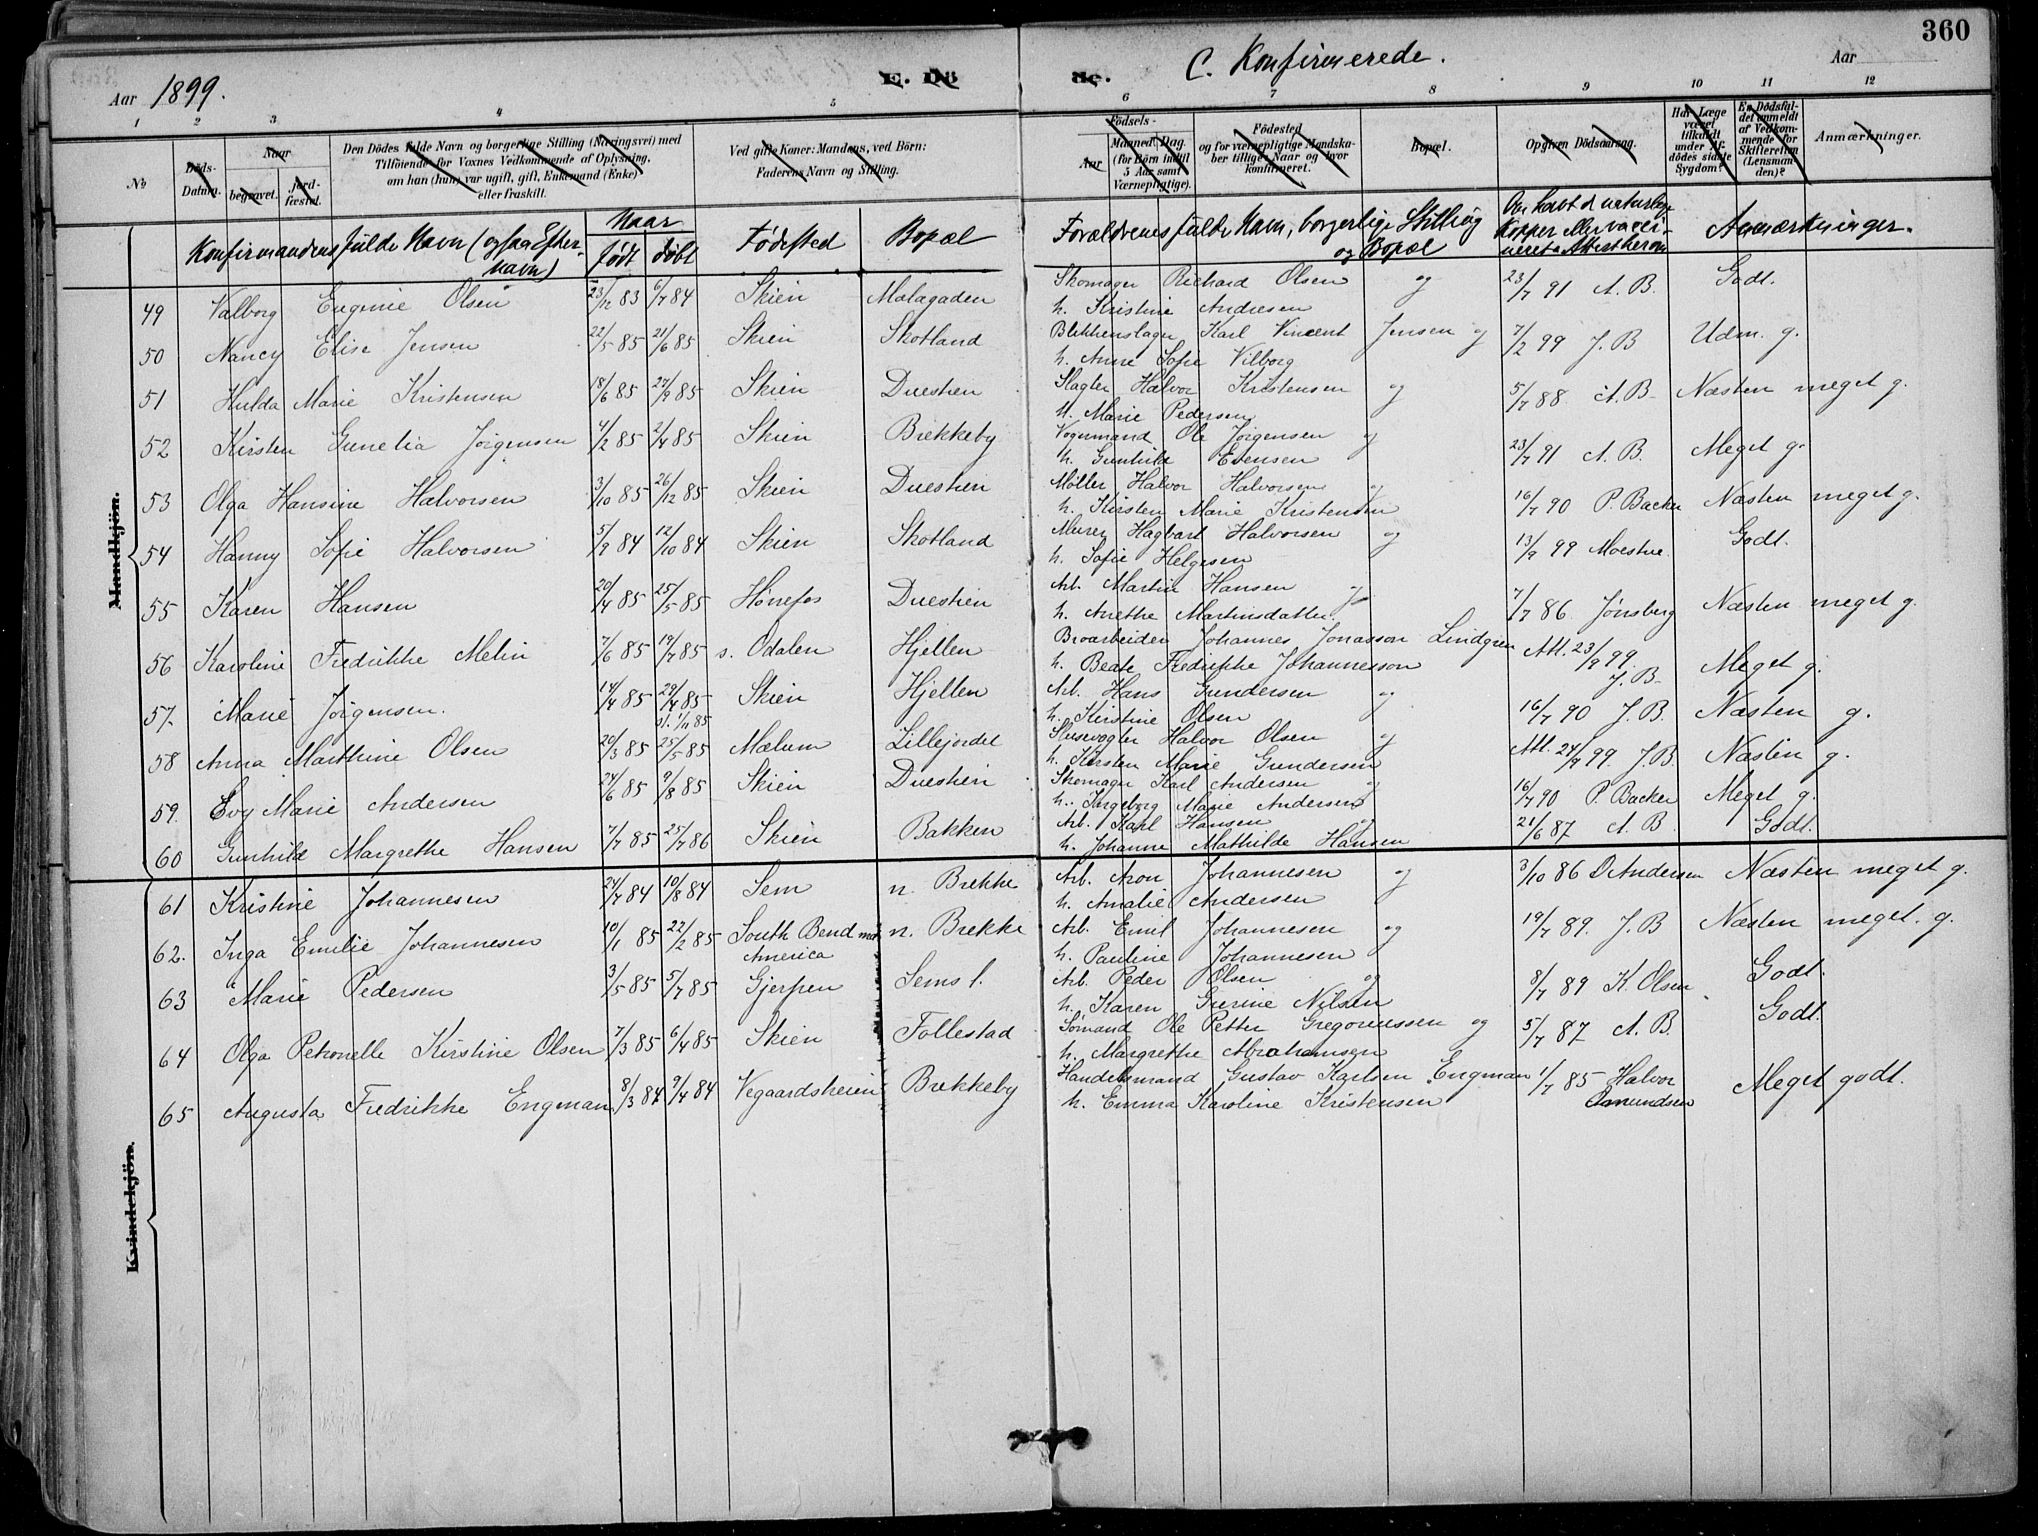 360
Aar 1899.
E. Dö
de.
C. Konfirmerede.
Aar
1 2 3 4 5 6 7 8 9 10 11 12
No
Döds-Datum.
Naar
begravet.
jord-fæstet.
Den Dödes fulde Navn og borgerlige Stilling (Næringsvei) med
Tilföiende for Voxnes Vedkommende af Oplysning,
om han (hun) var ugift, gift, Enkemand (Enke)
eller fraskilt.
Ved gifte Koner: Mandens, ved Börn:
Faderens Navn og Stilling.
Födsels-
Aar
Maaned. Dag.
(for Börn indtil 5 Aar samt Værnepligtige).
Födested
og for værnepligtige Mandskaber tillige Naar og hvor konfirmeret.
Bopæl.
Opgiven Dödsaarsag.
Har Læge været tilkaldt under Afdödes sidste Sygdom?
Er Dödsfaldet anmeldt af Vedkommende for Skifteretten (Lensmanden)?
Anmærkninger.
Konfirmandens fulde Navn (ogsaa Efternavn)
Naar
født
døbt
Fødested
Bopæl
Forældrenes fulde Navn, borgerlige Stilling og Bopæl
Om havt d. naturlige Kopper eller vaccineret + Attest herom
Anmærkninger.
Mandkjön.
49 Valborg Eugenie Olsen 23/12 83 6/7 84 Skien Malagaden Skomager Richard Olsen og 23/7 91 A. B. Godt.
h. Kristine Andresen
50 Nancy Elise Jensen 22/5 85 21/6 85 Skien Skotland Blikkenslager Karl Vincent Jensen og 7/2 99 J. B Udm. g.
h. Anne Sofie Vilborg
51 Hulda Marie Kristensen 18/6 85 27/9 85 Skien Duestien Slagter Halvor Kristensen og 5/7 88 A. B. Næsten meget g.
h. Marie Pedersen
52 Kirsten Gunelia Jørgensen 4/2 85 2/4 85 Skien Brekkeby Vognmand Ole Jørgensen og 23/7 91 A. B. Meget g.
h. Gunhild Evensen
53 Olga Hansine Halvorsen 3/10 85 26/12 85 Skien Duestien Møller Halvor Halvorsen og 16/7 90 P. Backer Næsten meget g.
h. Kirsten Marie Kristensen
54 Hanny Sofie Halvorsen 5/9 84 12/10 84 Skien Skotland Murer Hagbart Halvorsen og 13/9 99 Moestue. Godt.
h. Sofie Helgesen
55 Karen Hansen 20/4 85 25/5 85 Hønefos Duestien Arb. Martin Hansen og 7/7 86 Jønsberg Næsten meget g.
h. Anethe Martinsdatter
56 Karoline Fredrikke Melin 7/6 85 19/7 85 s. Odalen Hjellen Broarbeider Johannes Jonasson Lindgren Att. 23/9 99. J. B. Meget g.
h. Beate Fredrikke Johannesson
57. Marie Jørgensen. 14/4 85 29/4 85 st. 1/11 85 Skien Hjellen Arb. Hans Gundersen og 16/7 90 J. B. Næsten g.
h. Kirstine Olsen
58 Anna Marthine Olsen 20/3 85 25/5 85 Mælum Lillejordet Slusevogter Halvor Olsen og Att. 24/9 99. J. B. Næsten g.
h. Kirsten Marie Gundersen
59. Evy Marie Andersen 24/6 85 9/8 85 Skien Duestien Skomager Karl Andersen og 16/7 90 P. Backer Meget g.
h. Ingeborg Marie Andersen
60 Gunhild Margrethe Hansen 7/7 85 25/7 86 Skien Bakken Arb. Karl Hansen og 21/6 87 A. B Godt.
h. Johanne Mathilde Hansen
Kvindekjön.
61 Kristine Johannesen 24/7 84 10/8 84 Sem n. Brekke Arb. Aron Johannesen og 3/10 86 D Andersen Næsten meget g.
h. Amalie Andersen
62. Inga Emilie Johannesen 10/1 85 22/2 85 South Bend America n. Brekke Arb. Emil Johannesen og 19/7 89. J. B Næsten meget. g.
h. Pauline Johannesen
63 Marie Pedersen 3/5 85 5/7 85 Gjerpen Sems l. Arb. Peder Olsen og 8/7 89 K. Olsen Godt.
h. Karen Grerine Nilsen
64 Olga Petronelle Kirstine Olsen 7/3 85 6/4 85 Skien Follestad Sømand Ole Petter Gregoriussen og 5/7 87 A. B. Godt.
h. Margrethe Abrahamsen
65 Augusta Fredrikke Engman 8/3 84 9/4 84 Vegaardsheien Brekkeby Handelsmand Gustav Karlsen Engman 1/7 85 Halvor Amundsen Meget godt.
h. Emma Karoline Kristensen